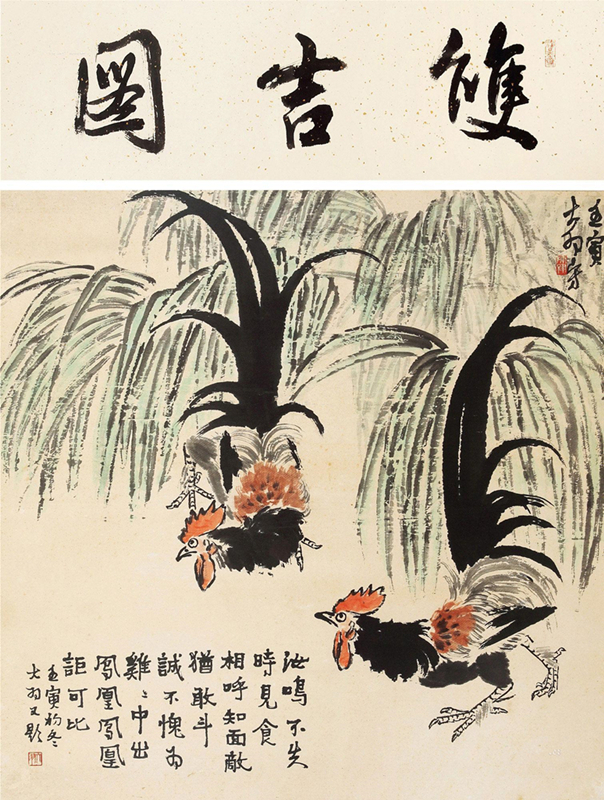 雙吉圖
壬寅
大羽寫
汝鳴不失
時見食
相呼知面敵
猶敢斗
誠不愧為
雞〻中出
鳳凰鳳凰
詎可比
壬寅初冬
大羽又題